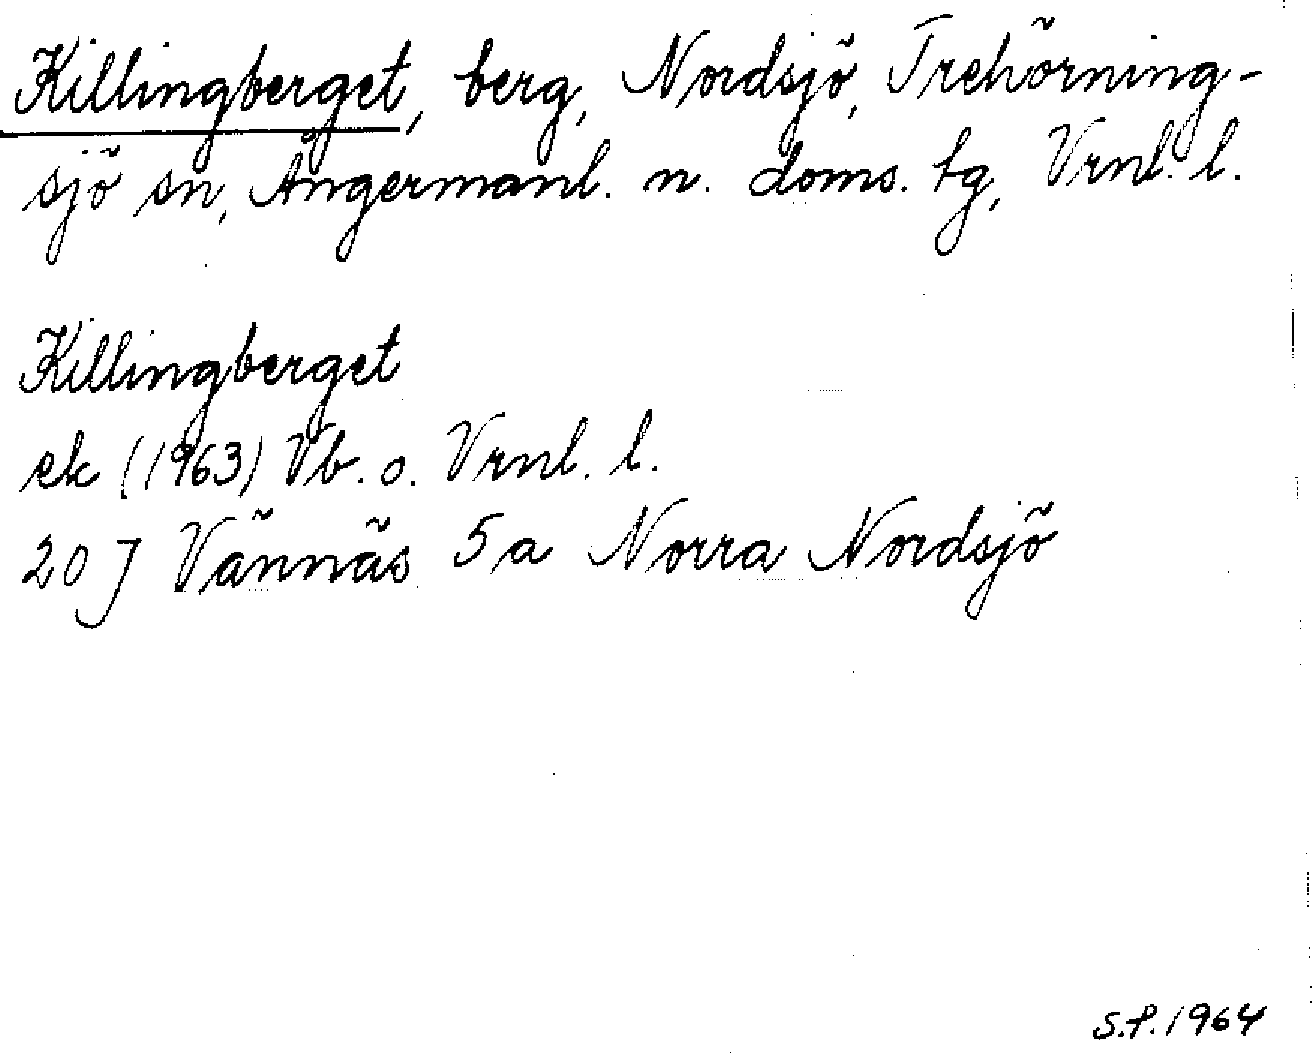 Killingberget, berg, Nordsjö, Trehörning-
sjö sn, Ångermanl. n. doms. tg, Vrnl. l.
Killingberget
ek (1963) Vb. o. Vrnl. l.
20 J Vännäs 5a Norra Nordsjö
S.P. 1964